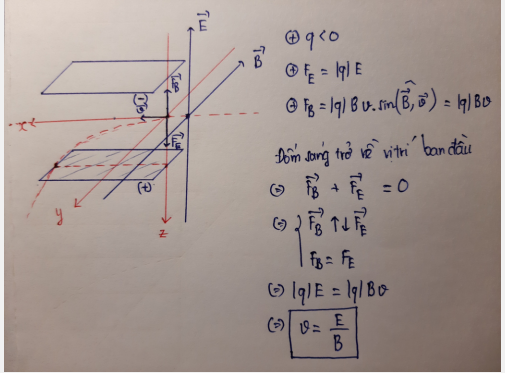 E⃗
B⃗
F⃗_B
(-)
x
F⃗_E
(+)
y
z
(+) q < 0
(+) F_E = |q| E
(+) F_B = |q| B v. sin(B⃗, v⃗) = |q| Bv
Đốm sáng trở về vị trí ban đầu
(=) F⃗_B + F⃗_E = 0
(=) { F⃗_B ↑↓ F⃗_E
F_B = F_E
(=) |q| E = |q| B v
(=) v = E/B